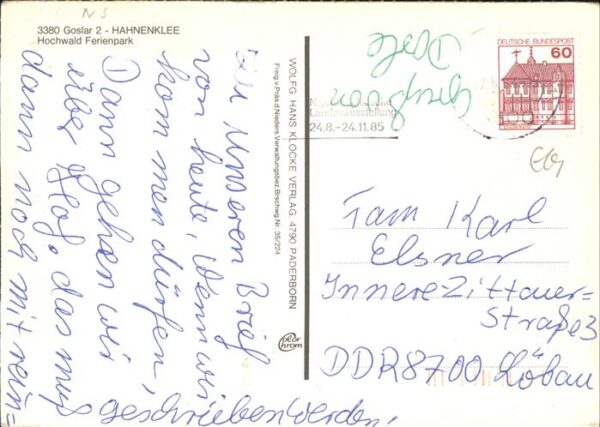 N S
3380 Goslar 2 - HAHNENKLEE
Hochwald Ferienpark
Zu unseren Brief
von heute, Wenn wir
kommen dürfen,
Dann gehen wir
das muß
dann noch mit rein=
geschrieben werden,
Gruß von
Dore
WOLFG. HANS KLOCKE VERLAG, 4790 PADERBORN
Freig. v. Präs. d. Nieders. Verwaltungsbez. Brschwg Nr. 35/224
color
chrom
DEUTSCHE BUNDESPOST
60
Landesausstellung
24.8.-24.11.85
Fam Karl
Elsner
Innere-Zittauer=
Straße 3
DDR 8700 Löbau